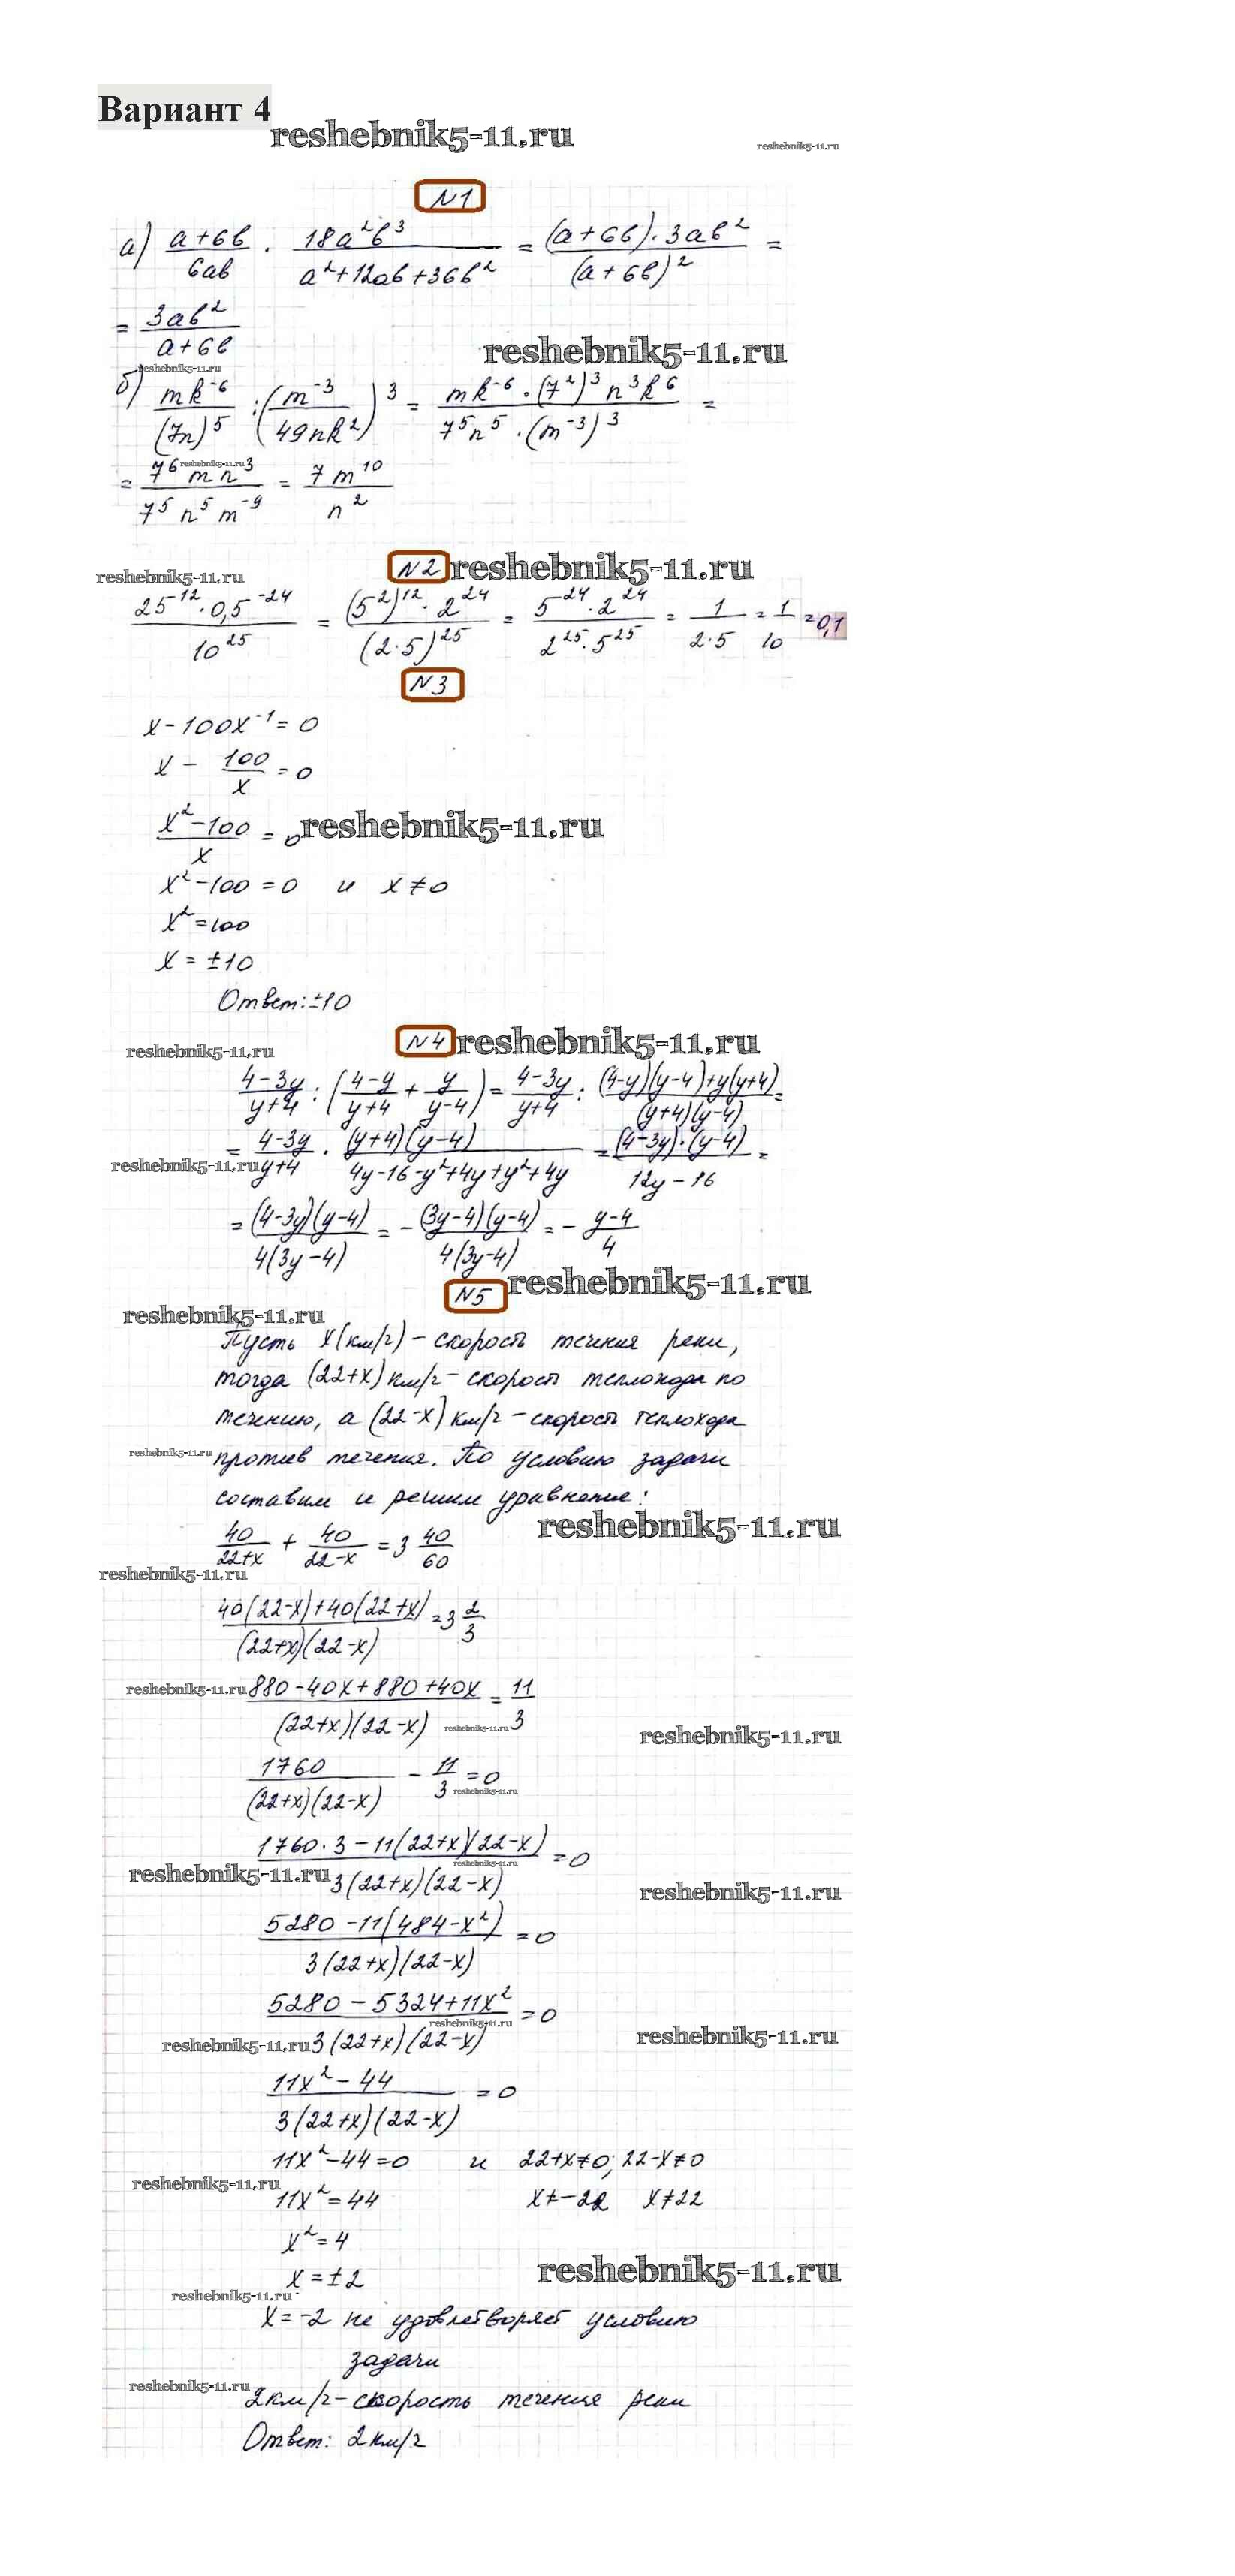 Вариант 4
reshebnik5-11.ru
reshebnik5-11.ru
N1
а) (a+6b)/(6ab) · (18a²b³)/(a²+12ab+36b²) = ((a+6b)·3ab²)/((a+6b)²) =
= (3ab²)/(a+6b)
reshebnik5-11.ru
reshebnik5-11.ru
б) (mk⁻⁶)/((7n)⁵) : (m⁻³/(49nk²))³ = (mk⁻⁶·(7²)³n³k⁶)/(7⁵n⁵·(m⁻³)³) =
reshebnik5-11.ru
= (7⁶mn³)/(7⁵n⁵m⁻⁹) = (7m¹⁰)/(n²)
N2 reshebnik5-11.ru
reshebnik5-11.ru
(25⁻¹²·0,5⁻²⁴)/(10²⁵) = ((5²)¹²·2²⁴)/((2·5)²⁵) = (5⁻²⁴·2²⁴)/(2²⁵·5²⁵) = 1/(2·5) = 1/10 = 0,1
N3
x-100x⁻¹=0
x - 100/x = 0
(x²-100)/x = 0 reshebnik5-11.ru
x²-100=0 и x≠0
x²=100
x=±10
Ответ: ±10
N4 reshebnik5-11.ru
reshebnik5-11.ru
(4-3y)/(y+4) : ((4-y)/(y+4) + y/(y-4)) = (4-3y)/(y+4) : ((4-y)(y-4)+y(y+4))/((y+4)(y-4)) =
= (4-3y)/(y+4) · ((y+4)(y-4))/(4y-16-y²+4y+y²+4y) = ((4-3y)·(y-4))/(12y-16) =
reshebnik5-11.ru
= ((4-3y)(y-4))/(4(3y-4)) = -((3y-4)(y-4))/(4(3y-4)) = -(y-4)/4
N5 reshebnik5-11.ru
reshebnik5-11.ru
Пусть x(км/ч) - скорость течения реки,
тогда (22+x) км/ч - скорость теплохода по
течению, а (22-x) км/ч - скорость теплохода
reshebnik5-11.ru против течения. По условию задачи
составим и решим уравнение:
reshebnik5-11.ru
40/(22+x) + 40/(22-x) = 3 40/60
reshebnik5-11.ru
(40(22-x)+40(22+x))/((22+x)(22-x)) = 3 2/3
reshebnik5-11.ru (880-40x+880+40x)/((22+x)(22-x)) = 11/3
reshebnik5-11.ru
reshebnik5-11.ru
1760/((22+x)(22-x)) - 11/3 = 0
reshebnik5-11.ru
(1760·3-11(22+x)(22-x))/(3(22+x)(22-x)) = 0
reshebnik5-11.ru
reshebnik5-11.ru
reshebnik5-11.ru
(5280-11(484-x²))/(3(22+x)(22-x)) = 0
(5280-5324+11x²)/(3(22+x)(22-x)) = 0
reshebnik5-11.ru
reshebnik5-11.ru
reshebnik5-11.ru
(11x²-44)/(3(22+x)(22-x)) = 0
11x²-44=0 и 22+x≠0; 22-x≠0
reshebnik5-11.ru
11x²=44 x≠-22 x≠22
x²=4
x=±2
reshebnik5-11.ru
reshebnik5-11.ru
x=-2 не удовлетворяет условию
задачи
reshebnik5-11.ru
2км/ч - скорость течения реки
Ответ: 2км/ч